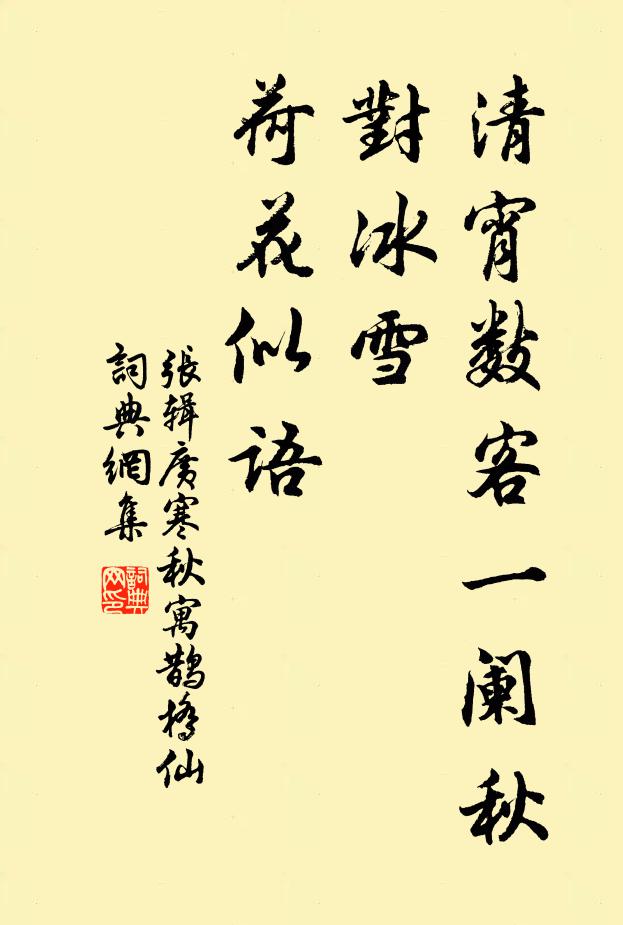 清宵數客一闌秋
對冰雪
荷花似語
張辑廣寒秋寓鵲橋仙
詞典網集
詞典
網印